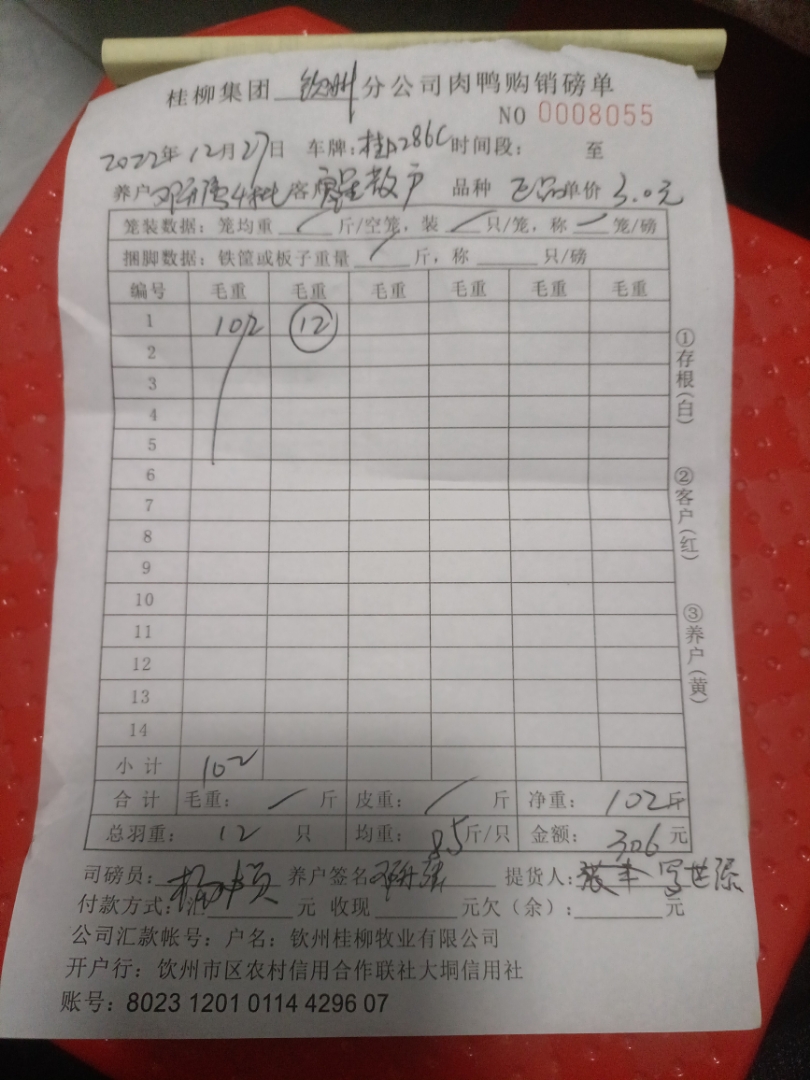 桂柳集团 钦州 分公司肉鸭购销磅单
NO 0008055
2022年12月27日 车牌：桂 286C 时间段： 至
养户 4批 客 散户 品种 正品 单价 3.0元
笼装数据：笼均重 / 斤/空笼，装 / 只/笼，称 / 笼/磅
捆脚数据：铁筐或板子重量 / 斤，称 只/磅
编号 毛重 毛重 毛重 毛重 毛重 毛重
1 102 12
2
3
4
5
6
7
8
9
10
11
12
13
14
小计 102
合计 毛重： / 斤 皮重： / 斤 净重： 102斤
总羽重： 12 只 均重： 8.5斤/只 金额： 306元
司磅员： 养户签名 提货人：
付款方式：汇 元 收现 元欠（余）： 元
公司汇款帐号：户名：钦州桂柳牧业有限公司
开户行：钦州市区农村信用合作联社大垌信用社
账号：8023 1201 0114 4296 07
①存根（白）
②客户（红）
③养户（黄）